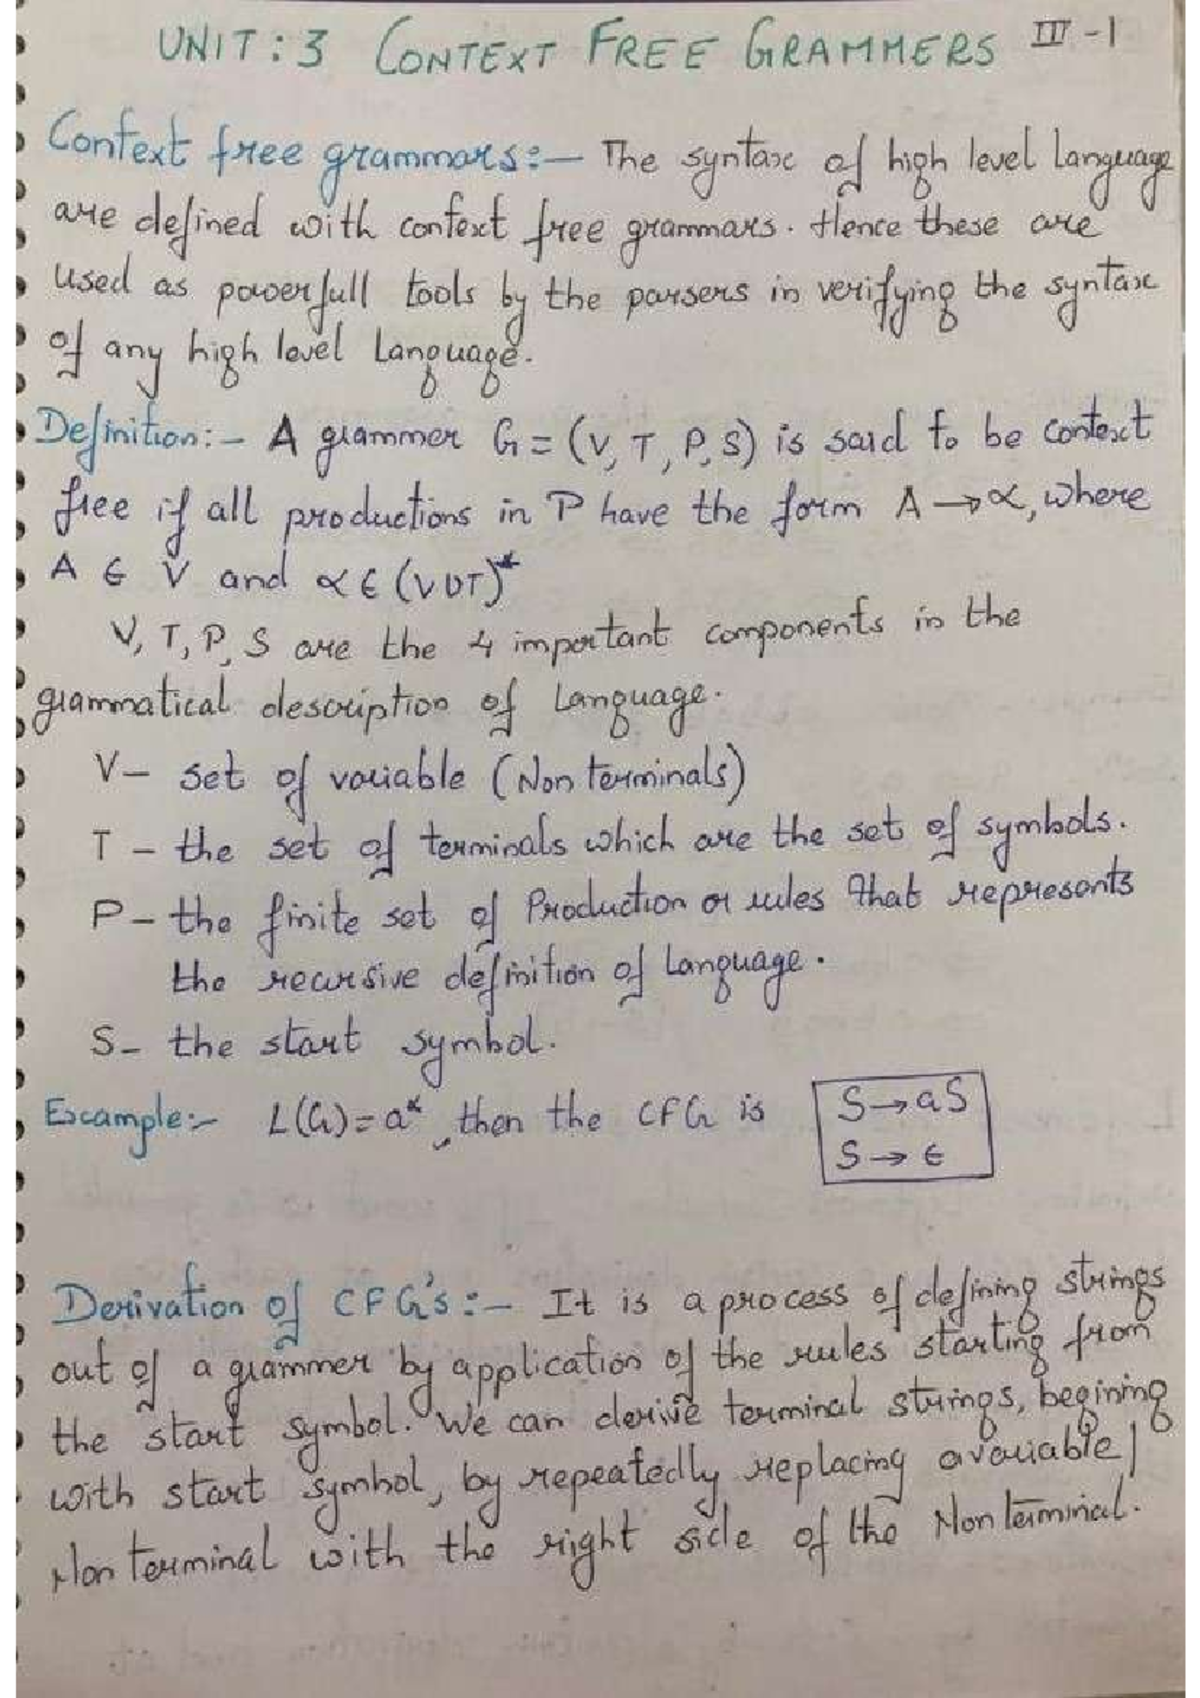 UNIT: 3 CONTEXT FREE GRAMMERS III-1
Context free grammars:- The syntax of high level Language
are defined with context free grammars. Hence these are
used as powerfull tools by the parsers in verifying the syntax
of any high level Language.
Definition:- A grammer G = (V, T, P, S) is said to be context
free if all productions in P have the form A → α, where
A ∈ V and α ∈ (V ∪ T)*
V, T, P, S are the 4 important components in the
grammatical description of Language.
V- set of variable (Non terminals)
T - the set of terminals which are the set of symbols.
P - the finite set of Production or rules that represents
the recursive definition of Language.
S- the start symbol.
Example:- L(G) = a*, then the CFG is S → aS
S → ϵ
Derivation of CFG's:- It is a process of defining strings
out of a grammer by application of the rules starting from
the start symbol. We can derive terminal strings, begining
with start symbol, by repeatedly replacing a variable/
Non terminal with the right side of the Non terminal.